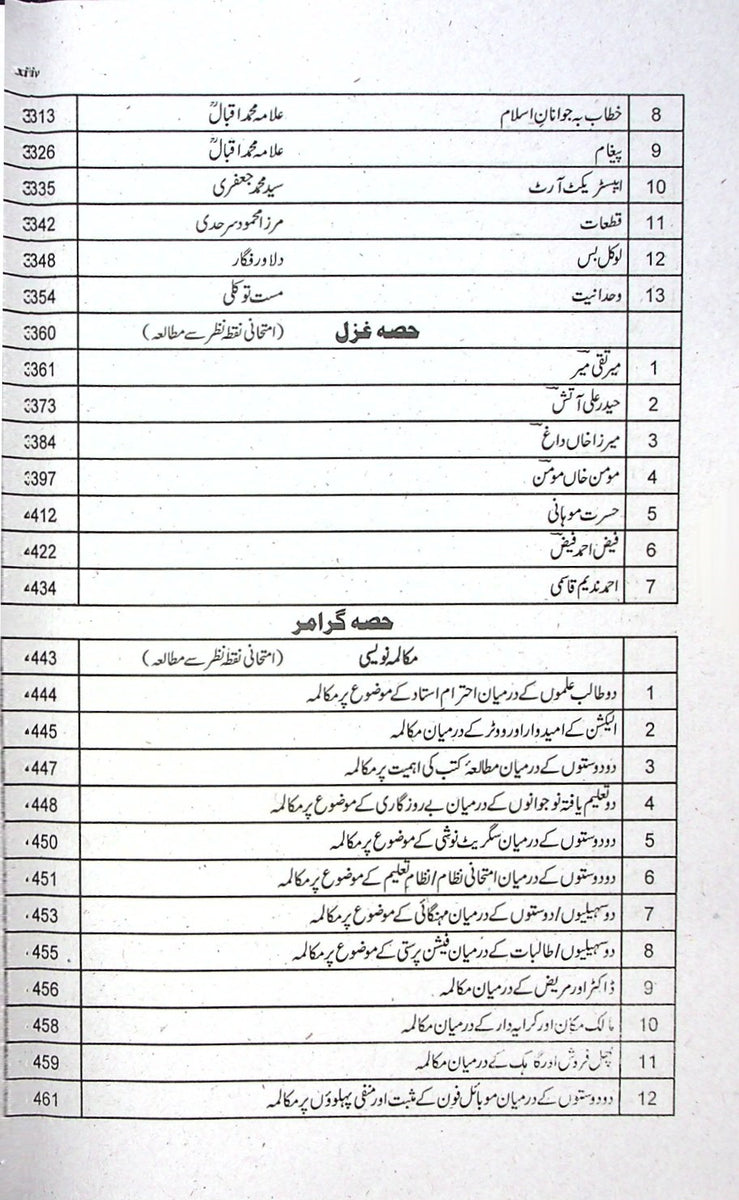 xiv
8 خطاب بہ جوانانِ اسلام علامہ محمد اقبالؒ 3313
9 پیغام علامہ محمد اقبالؒ 3326
10 ایبسٹریکٹ آرٹ سید محمد جعفری 3335
11 قطعات مرزا محمود سرحدی 3342
12 لوکل بس دلاور فگار 3348
13 وحدانیت مست توکلی 3354
حصہ غزل (امتحانی نقطہ نظر سے مطالعہ) 3360
1 میر تقی میر 3361
2 حیدر علی آتش 3373
3 میرزا خاں داغ 3384
4 مومن خاں مومن 3397
5 حسرت موہانی 412
6 فیض احمد فیض 422
7 احمد ندیم قاسمی 434
حصہ گرامر
مکالمہ نویسی (امتحانی نقطہ نظر سے مطالعہ) 443
1 دو طالب علموں کے درمیان احترامِ استاد کے موضوع پر مکالمہ 444
2 الیکشن کے امیدوار اور ووٹر کے درمیان مکالمہ 445
3 دو دوستوں کے درمیان مطالعۂ کتب کی اہمیت پر مکالمہ 447
4 دو تعلیم یافتہ نوجوانوں کے درمیان بے روزگاری کے موضوع پر مکالمہ 448
5 دو دوستوں کے درمیان سگریٹ نوشی کے موضوع پر مکالمہ 450
6 دو دوستوں کے درمیان امتحانی نظام/نظامِ تعلیم کے موضوع پر مکالمہ 451
7 دو سہیلیوں/دوستوں کے درمیان مہنگائی کے موضوع پر مکالمہ 453
8 دو سہیلیوں/طالبات کے درمیان فیشن پرستی کے موضوع پر مکالمہ 455
9 ڈاکٹر اور مریض کے درمیان مکالمہ 456
10 مالک مکان اور کرایہ دار کے درمیان مکالمہ 458
11 پھل فروش اور گاہک کے درمیان مکالمہ 459
12 دو دوستوں کے درمیان موبائل فون کے مثبت اور منفی پہلوؤں پر مکالمہ 461